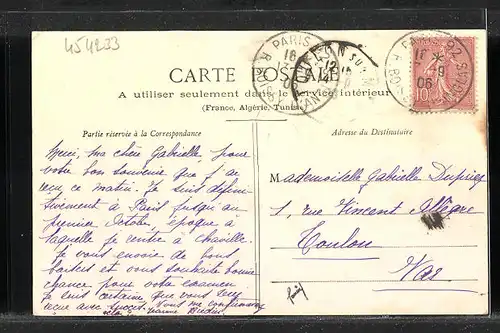 454233
CARTE POSTALE
A utiliser seulement dans le service intérieur
(France, Algérie, Tunisie)
Partie réservée à la Correspondance
Adresse du Destinataire
PARIS
PARIS 92
10
Merci, ma chère Gabrielle, pour
votre bon souvenir que j'ai
reçu ce matin. Je suis défini-
tivement à Paris jusqu'au
premier Octobre, époque à
laquelle je rentre à Chaville.
Je vous envoie de bons
baisers et vous souhaite bonne
chance pour votre examen
je suis certaine que vous serez
reçue avec succès. Vous me
Jeanne
Mademoiselle Gabrielle Dupuy
1, rue Vincent Allègre
Toulon
Var